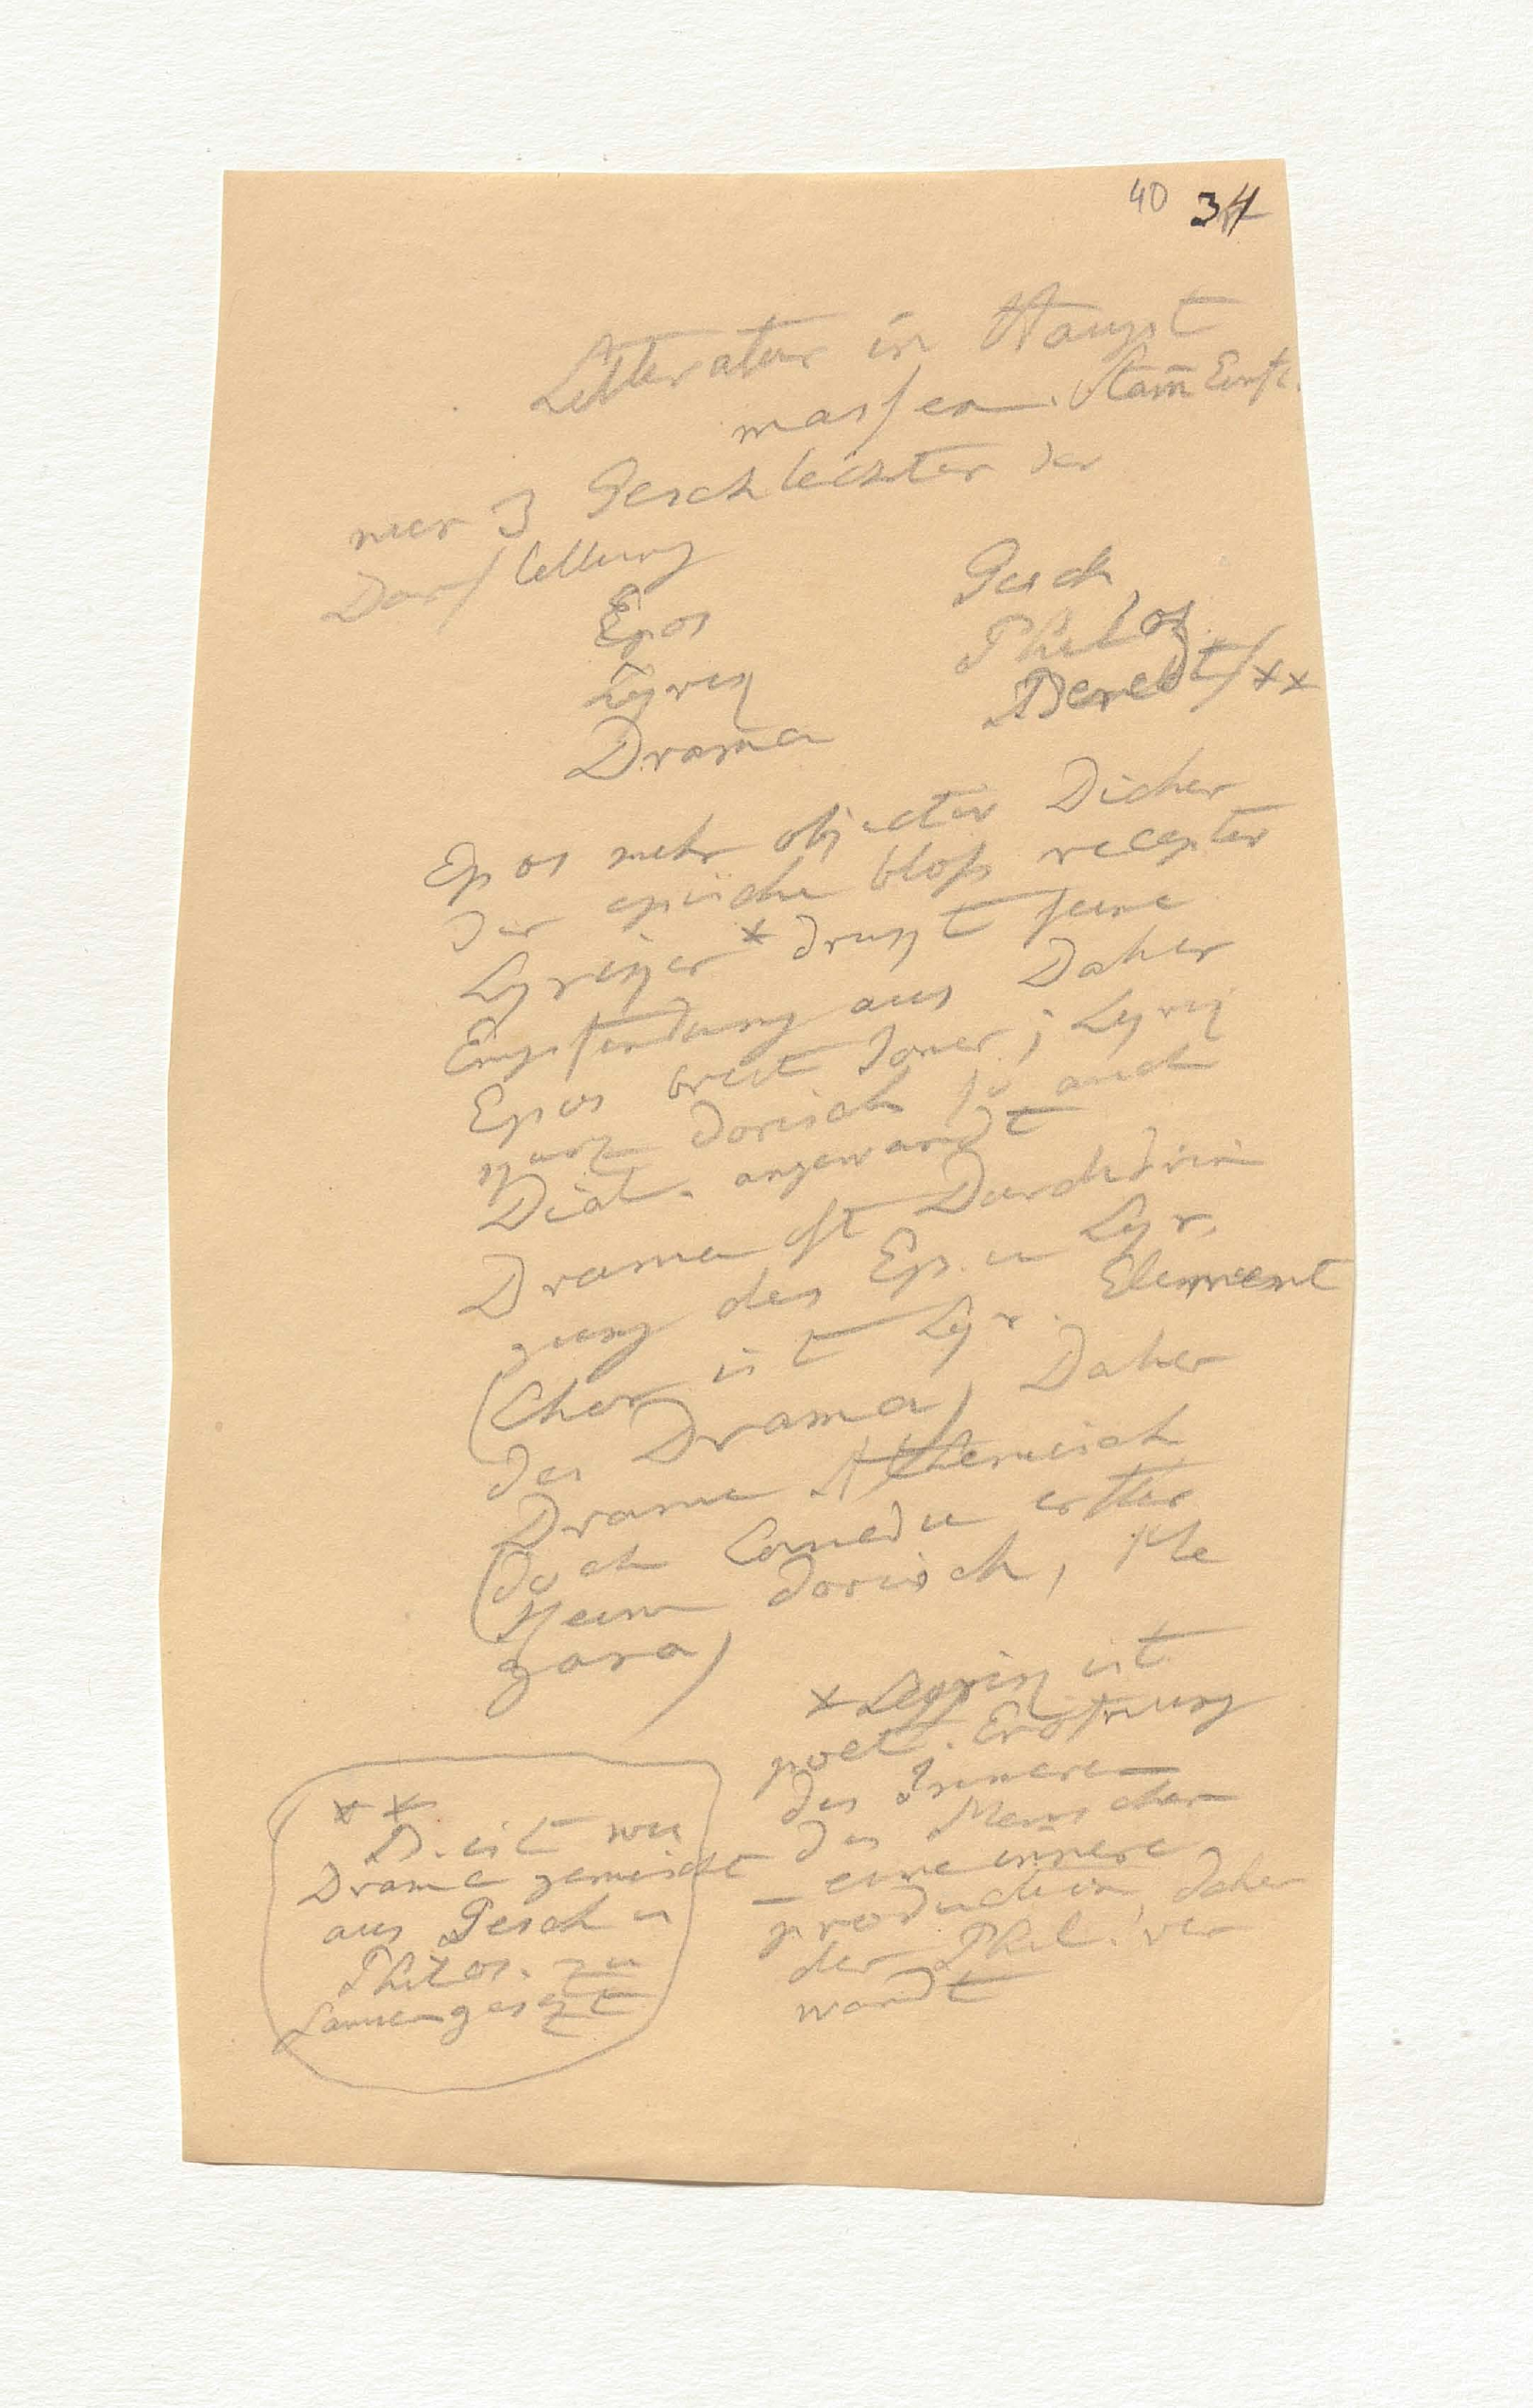 40 34
Litteratur in Haupt
massen. Stam̄ Einfl.
nur 3 Geschlechter der
Darstellung
Epos Gesch
Lyrik Philos
Drama Beredt/××
Epos mehr objectiv Dicher
der epische bloß receptiv
Lyriker * drukt seine
Empfindung aus Daher
Epos breit Joner; Lyrik
kurz dorisch so auch
Dial. angewandt
Drama ist Durchdrin
gung des Ep. u Lyr.
(Chor ist Lyr. Element
des Drama) Daher
Drama Atheniesich
(doch Comedie erster
Keim dorisch, Me
gara)
* Lyrik ist
poet. Eröfnung
des Inneren
des Menschen
– eine innere
production, daher
der Phil. ver
wandt
××
B. ist wie
Drama gemischt
aus Gesch u
Philos. zu
samengesezt